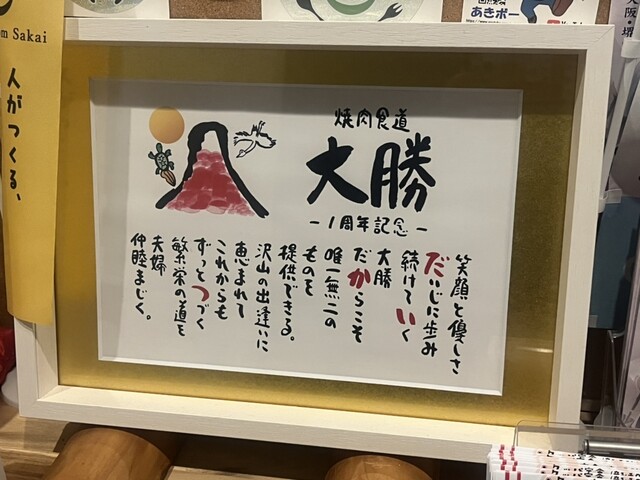 焼肉食道
大勝
-1周年記念-
笑顔と優しさ
だいじに歩み
続けていく
大勝
だからこそ
唯一無二の
ものを
提供できる。
沢山の出逢いに
恵まれて
これからも
ずっとつづく
繁栄の道を
夫婦
仲睦まじく。
om Sakai
人がつくる、
あきボー
大阪・堺